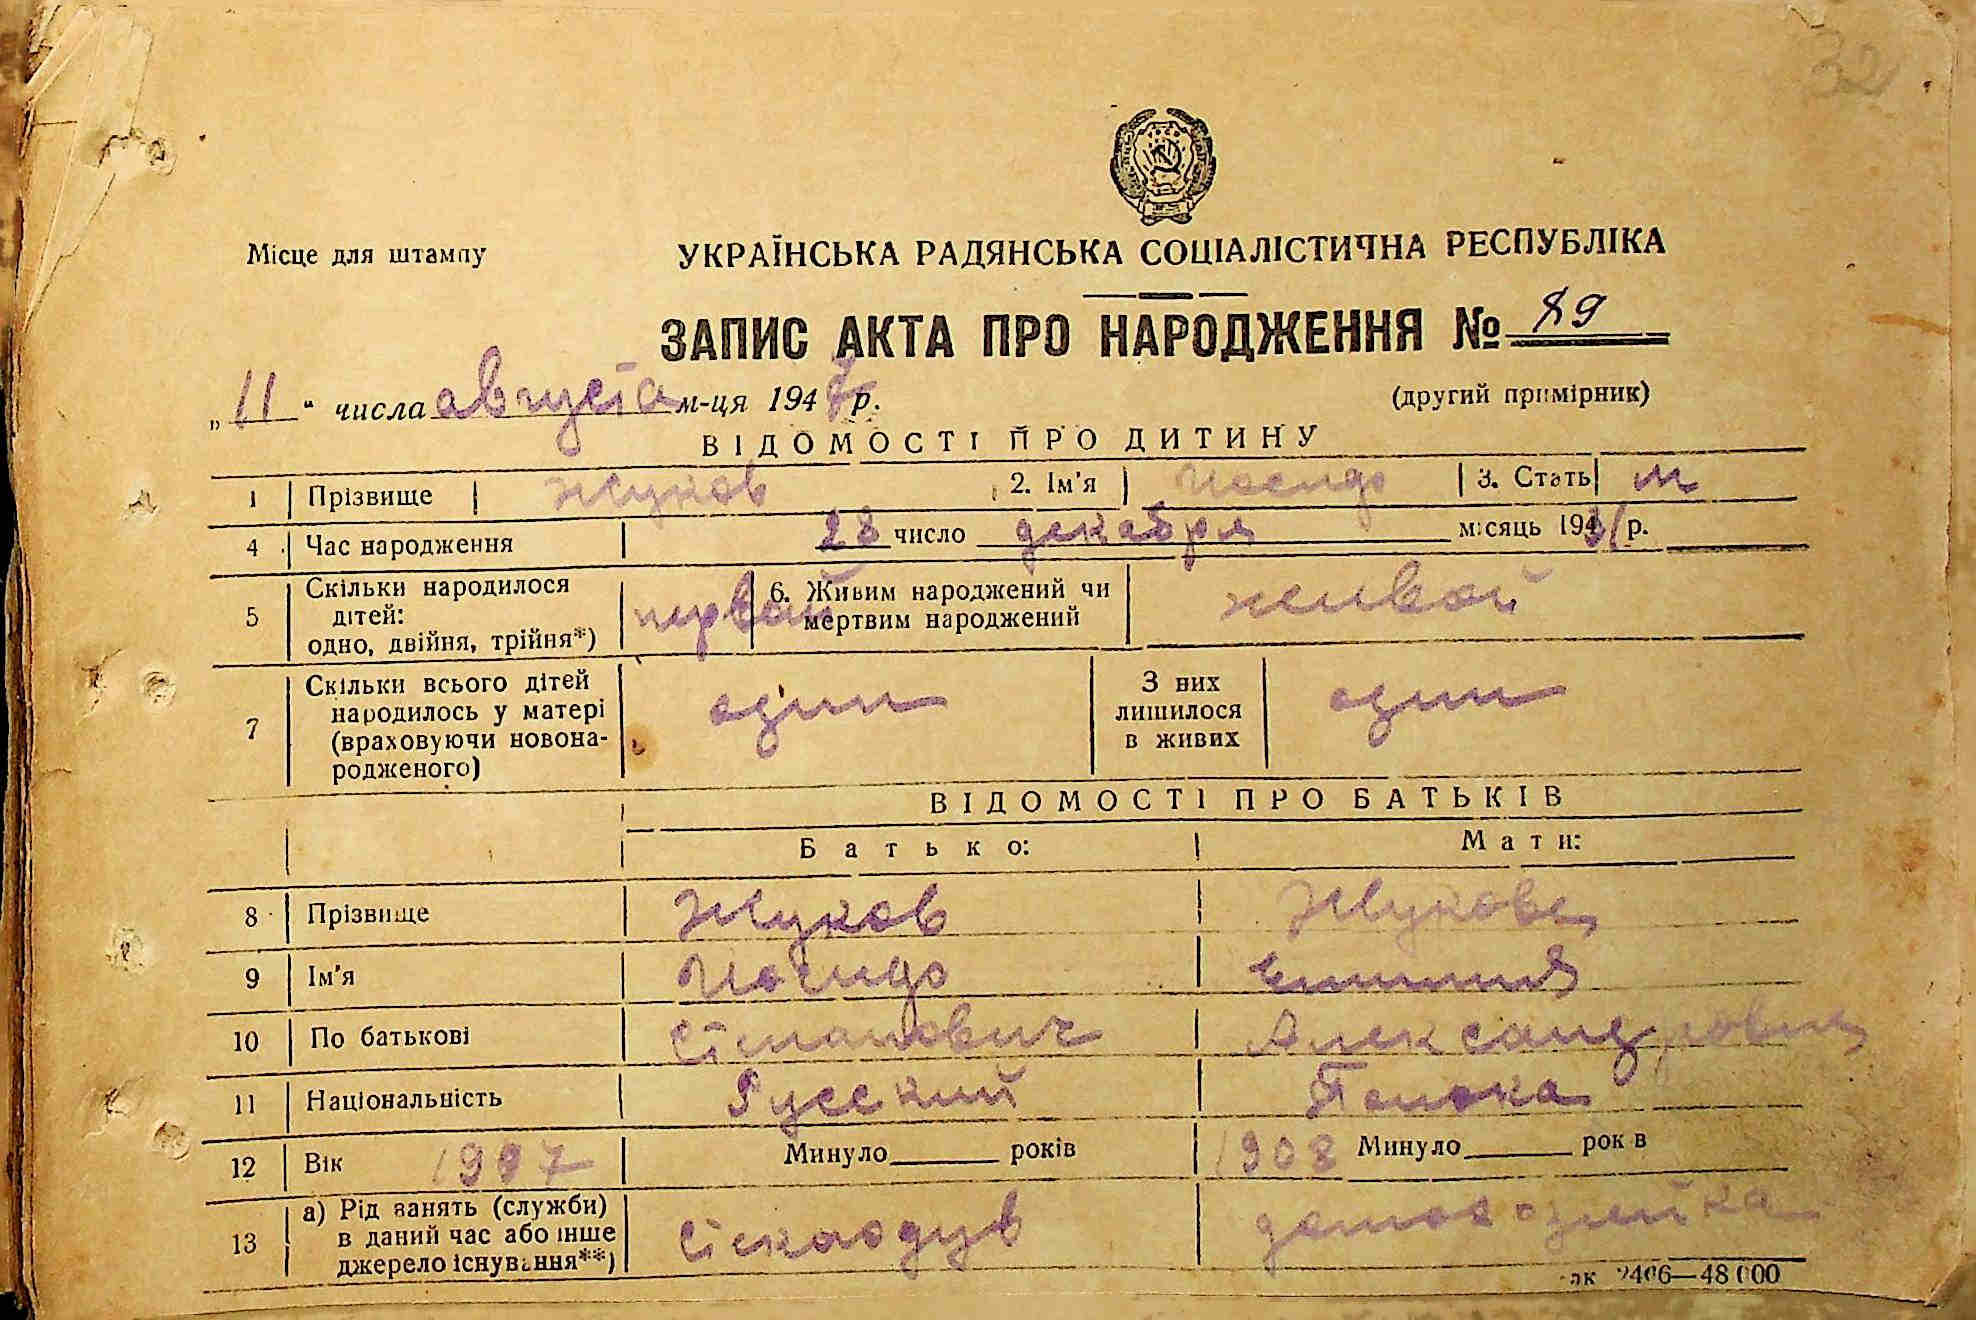 32
Місце для штампу
УКРАЇНСЬКА РАДЯНСЬКА СОЦІАЛІСТИЧНА РЕСПУБЛІКА
ЗАПИС АКТА ПРО НАРОДЖЕННЯ № 89
„11“ числа августа м-ця 194 р.
(другий примірник)
ВІДОМОСТІ ПРО ДИТИНУ
1 Прізвище Жуков 2. Ім'я 3. Стать м
4 Час народження 28 число декабря місяць 1931 р.
5 Скільки народилося дітей: одно, двійня, трійня*) первый 6. Живим народжений чи мертвим народжений живой
7 Скільки всього дітей народилось у матері (враховуючи новонародженого) один З них лишилося в живих один
ВІДОМОСТІ ПРО БАТЬКІВ
Батько: Мати:
8 Прізвище Жуков Жукова
9 Ім'я
10 По батькові Степанович Александровна
11 Національність Русский Полька
12 Вік 1907 Минуло років 1908 Минуло рок в
13 а) Рід занять (служби) в даний час або інше джерело існування**) стеклодув домохозяйка
2406—48 000